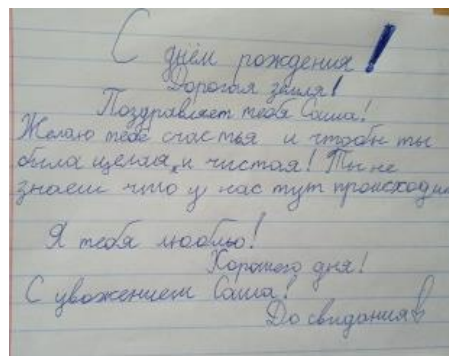 С днём рождения!
Дорогая земля!
Поздравляет тебя Саша!
Желаю тебе счастья и чтобы ты
была целая, и чистая! Ты не
знаеш что у нас тут происходи
Я тебя люблью!
Хорошего дня!
С уважением Саша!
До свидания